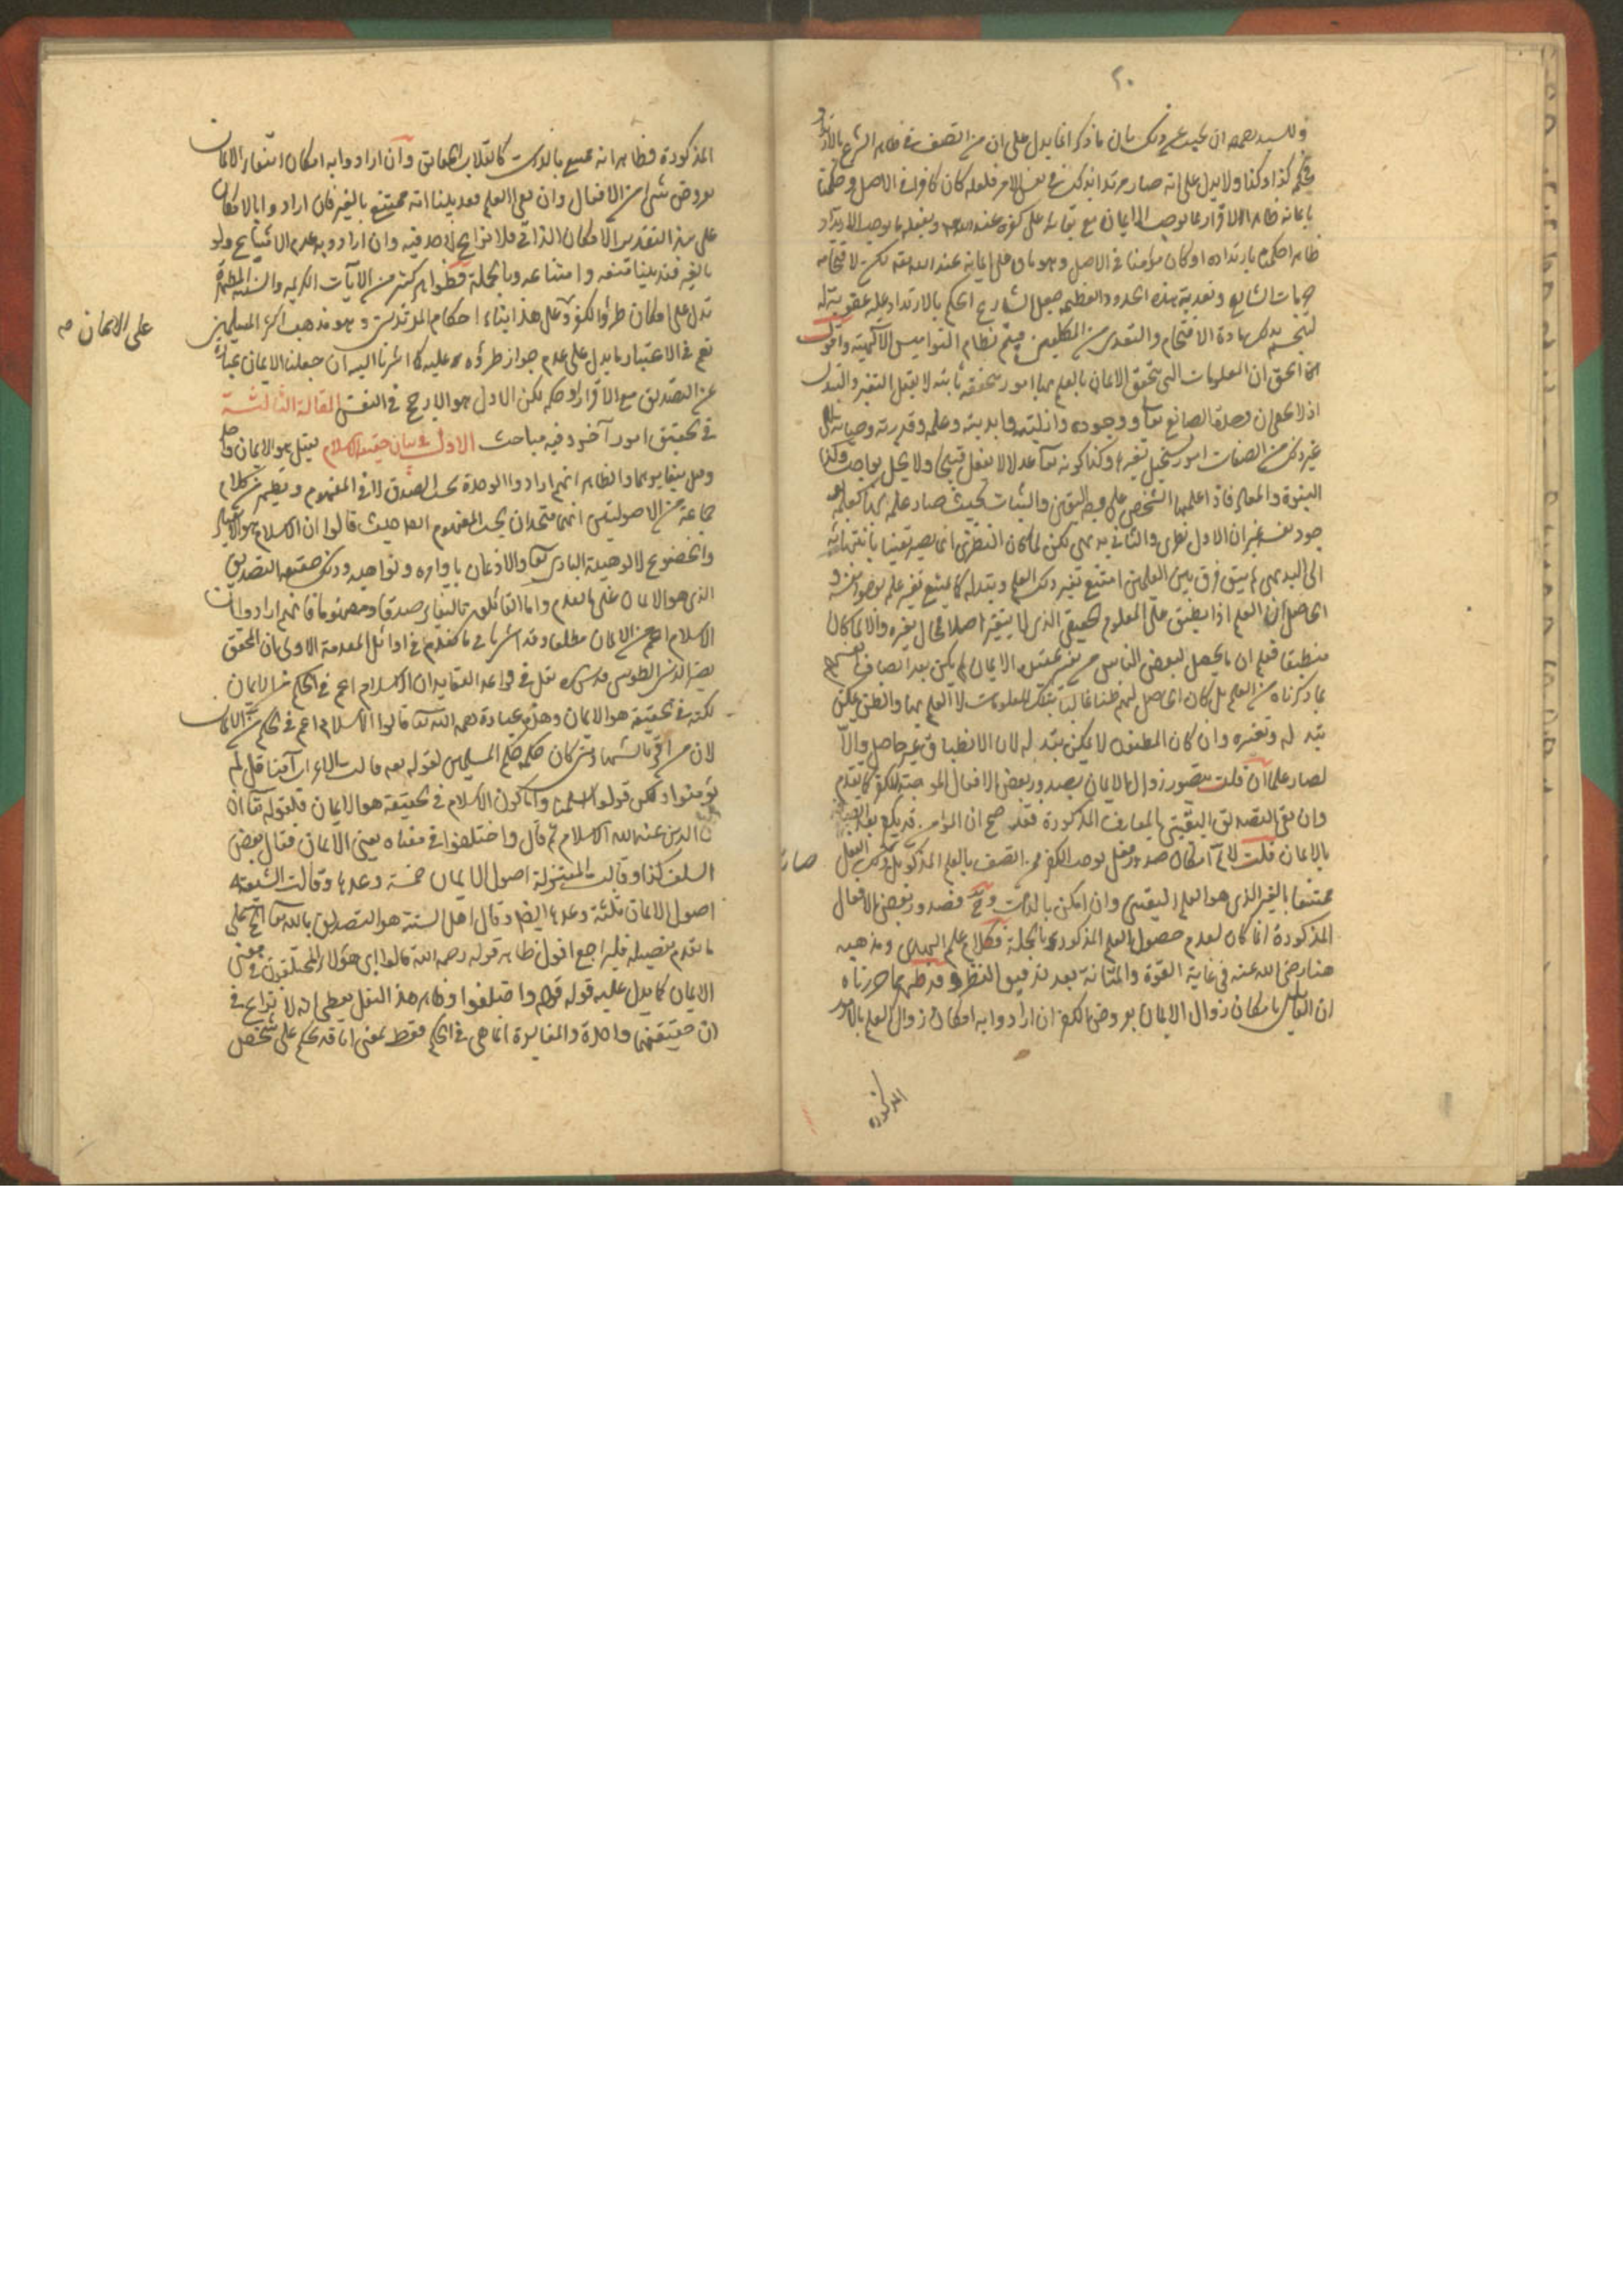 ٢٠
وللسيد رحمه الله ان يجيب عن ذلك بان ما ذكر انما يدل على ان من اتصف في ظاهر الشرع بالارتداد
فحكمه كذا وكذا ولا يدل على انه صار مرتدا بذلك في نفس الامر فلعله كان كافرا في الاصل وحكمنا
بايمانه ظاهرا للاقرار بما يوجب الايمان مع بقائه على كفره عند الله وبفعله ما يوجب الارتداد
ظاهرا حكم بارتداده او كان مؤمنا في الاصل وهو باق على ايمانه عند الله تعالى لكن لاقتحامه
حرمات الشارع وتعديه هذه الحدود العظيمة جعل الشارع الحكم بالارتداد عليه عقوبة له
لينحسم بذلك مادة الاقتحام والتعدي من المكلفين فيتم نظام النواميس الالهية واقول
الحق ان المعلومات التي يتحقق الايمان بالعلم بها امور متحققة ثابتة لا يقبل التغير والتبدل
اذ لا يخفى ان وحدة الصانع تعالى ووجوده وازليته وابديته وعلمه وقدرته وحياته الى
غير ذلك من الصفات امور يستحيل تغيرها وكذا كونه تعالى عدلا لا يفعل قبيحا ولا يخل بواجب وكذا
النبوة والمعاد فاذا علمها الشخص على وجه اليقين والثبات بحيث صار علمه بها كعلمه
بوجود نفسه غير ان الاول نظري والثاني بديهي لكن لما كان النظري انما يصير يقينيا بانتهائه
الى البديهي لم يبق فرق بين العلمين امتنع تغير ذلك العلم وتبدله كما يمتنع تغير علمه بوجود نفسه و
الحاصل ان العلم اذا انطبق على المعلوم الحقيقي الذي لا يتغير اصلا فمحال تغيره والا لما كان
منطبقا فعلم ان ما يحصل لبعض الناس من تغير عقيدة الايمان لم يكن بعد اتصاف نفسهم
بما ذكرناه من العلم بل كان الحاصل لهم ظنا غالبا بتلك المعلومات لا العلم بها والظن يمكن
تبدله وتغيره وان كان المظنون لا يمكن تبدله لان الانطباق غير حاصل والا
لصار علما ان قلت يتصور زوال الايمان بصدور بعض الافعال الموجبة للكفر كما تقدم
وان بقي التصديق اليقيني بالمعارف المذكورة فقد صح ان المؤمن قد يكفر بعد
بالايمان قلت لا نم امكان صدور فعل يوجب الكفر ممن اتصف بالعلم المذكور بل الفعل صار
ممتنعا بالغير الذي هو العلم اليقيني وان امكن بالذات وح فصدور بعض الافعال
المذكورة انما كان لعدم حصول العلم المذكور وبالجملة فكلام علم الهدى ومذهبه
هنا رضي الله عنه في غاية القوة والمتانة بعد تدقيق النظر وقد ظهر مما حررناه
ان القائلين بامكان زوال الايمان بعروض الكفر ان ارادوا به امكان زوال العلم بالامور
المذكورة
المذكورة فظاهر انه ممتنع بالذات كانقلاب الحقائق وان ارادوا به امكان انتفاء الايمان
بعروض شيء من الافعال وان بقي العلم فقد بينا انه ممتنع بالغير فان ارادوا بالامكان
على هذا التقدير الامكان الذاتي فلا نزاع لاحد فيه وان ارادوا به عدم الامتناع ولو
بالغير فقد بينا منعه وامتناعه وبالجملة فظواهر كثير من الآيات الكريمة والسنة المطهرة
تدل على امكان طرو الكفر على الايمان صح
وعلى هذا بناء احكام المرتدين وهو مذهب اكثر المسلمين
نعم في الاعتبار ما يدل على عدم جواز طروه عليه كما اشرنا اليه ان جعلنا الايمان عبارة
عن التصديق مع الاقرار او حكمه لكن الاول هو الارجح في النفس المقالة الثالثة
في تحقيق امور اخر وفيه مباحث الاول في بيان حقيقة الاسلام فقيل هو والايمان واحد
وقيل بتغايرهما والظاهر انهم ارادوا الوحدة بحسب الصدق لا في المفهوم ويظهر من كلام
جماعة من الاصوليين انهما متحدان بحسب المفهوم ايضا حيث قالوا ان الاسلام هو الانقياد
والخضوع لالوهية الباري تعالى والاذعان باوامره ونواهيه وذلك حقيقة التصديق
الذي هو الايمان على ما تقدم واما القائلون بالتغاير صدقا ومفهوما فانهم ارادوا ان
الاسلام اعم من الايمان مطلقا وقد اشرنا في ما تقدم في اوائل المقدمة الاولى ان المحقق
نصير الدين الطوسي قدس سره نقل في قواعد العقايد ان الاسلام اعم في الحكم من الايمان
لكنه في الحقيقة هو الايمان وهذه عبارة رحمه الله تعالى قالوا الاسلام اعم في الحكم من الايمان
لان من اقر بالشهادتين كان حكمه حكم المسلمين لقوله تعالى قالت الاعراب آمنا قل لم
تؤمنوا ولكن قولوا اسلمنا واما كون الاسلام في الحقيقة هو الايمان فلقوله تعالى ان
الدين عند الله الاسلام ثم قال واختلفوا في معناه يعني الايمان فقال بعض
السلف كذا وقالت المعتزلة اصول الايمان خمسة وعدها وقالت الشيعة
اصول الايمان ثلثة وعدها ايضا وقال اهل السنة هو التصديق بالله تعالى الخ على
ما تقدم تفصيله فليراجع اقول ظاهر قوله رحمه الله قالوا اي هؤلاء المختلفون في معنى
الايمان كما يدل عليه قوله قالوا واختلفوا وظاهر هذا النقل يعطي انه لا نزاع في
ان حقيقتهما واحدة والمغايرة انما هي في الحكم فقط بمعنى انا قد نحكم على شخص